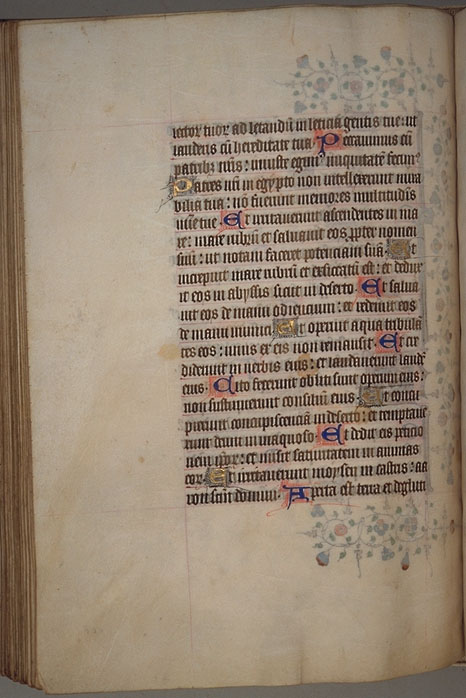 lectorū tuorū ad letandū in leticia gentis tue: ut
lauderis cū hereditate tua. Peccavimus cū
patribꝫ nr̄is: iniuste egimꝰ iniquitatē fecimꝰ
Patres nr̄i in egypto non intellexerunt mira
bilia tua: nō fuerunt memores multitudinis
mīe tue. Et irritaverunt ascendentes in ma
re: mare rubrū et salvavit eos ꝓpter nomen
suū: ut notam faceret potenciam suā. Et
increpuit mare rubrū et exsiccatū est: et dedux
it eos in abyssis sicut in deserto. Et salva
vit eos de manu odiencium: et redemit eos
de manu inimici. Et operuit aqua tribulā
tes eos: unus ex eis non remansit. Et cre
diderunt in verbis eius: et laudaverunt laudē
eius. Cito fecerunt obliti sunt operum eius:
non sustinuerunt consiliū eius. Et concu
pierunt concupiscenciā in deserto: et temptave
runt deum in inaquoso. Et dedit eis peticio
nem ipsoꝝ: et misit saturitatem in animas
eoꝝ. Et irritaverunt moysen in castris: aa
ron sctm̄ domini. Aperta est terra et degluti